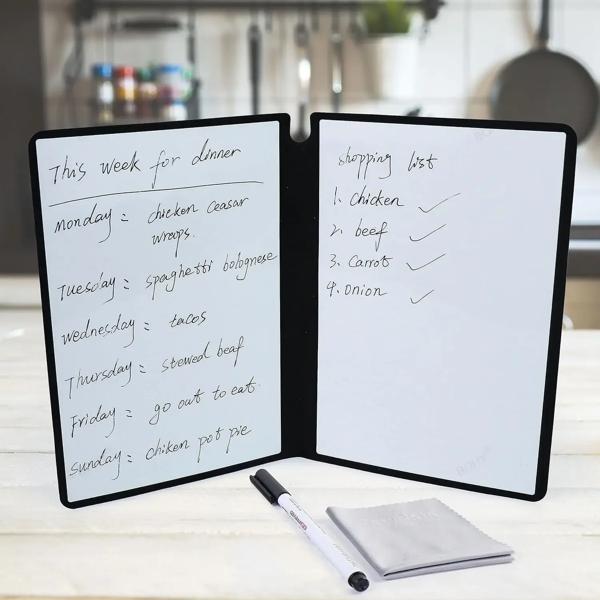 This week for dinner
monday : chicken ceasar
wraps.
Tuesday : spaghetti bolognese
wednesday : tacos
Thursday : stewed beaf
Friday : go out to eat.
sunday : chiken pot pie
shopping list
1. chicken ✓
2. beef ✓
3. carrot ✓
4. onion ✓